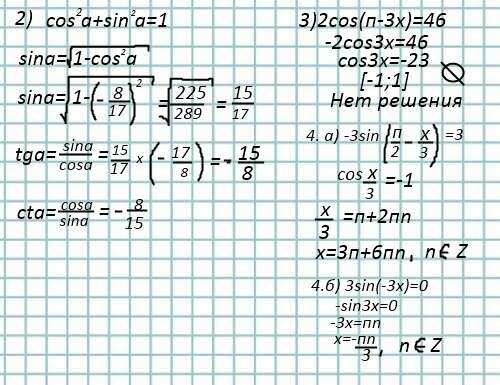 2) cos²a+sin²a=1
sina=√1-cos²a
sina=√1-(-8/17)² = √225/289 = 15/17
tga=sina/cosa=15/17 x (-17/8)=-15/8
cta=cosa/sina=-8/15
3)2cos(п-3x)=46
-2cos3x=46
cos3x=-23
[-1;1] ∅
Нет решения
4. а) -3sin(п/2-x/3)=3
cos x/3=-1
x/3=п+2пn
x=3п+6пn, n∈Z
4.б) 3sin(-3x)=0
-sin3x=0
-3x=пn
x=-пn/3, n∈Z